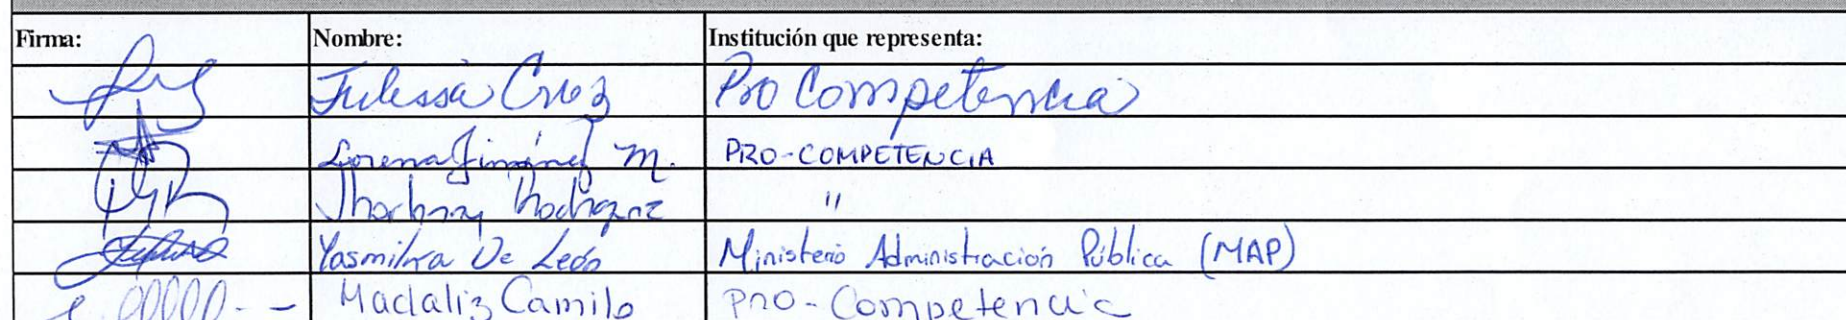 Firma: Nombre: Institución que representa:
Julissa Cruz Pro Competencia
Lorena Jiménez M. PRO-COMPETENCIA
Rodríguez "
De León Ministerio Administración Pública (MAP)
Madaliz Camilo Pro-Competencia